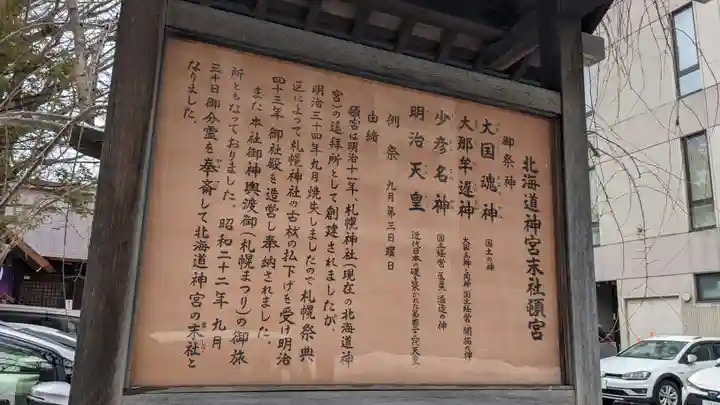 北海道神宮末社頓宮
御祭神
大国魂神 国土の神
大那牟遅神 大国主神と同神 国土経営・開拓の神
少彦名神 国土経営・医薬・酒造の神
明治天皇 近代日本の礎を築かれた第百二十二代天皇
例祭 九月第三日曜日
由緒
頓宮は明治十一年、札幌神社(現在の北海道神
宮)の遥拝所として創建されましたが、
明治三十四年九月焼失しましたので札幌祭典
区によって札幌神社の古材の払下げを受け明治
四十三年御社殿を造営し奉納されました。
また本社御神輿渡御(札幌まつり)の御旅
所ともなっておりました。昭和二十二年九月
三十日御分霊を奉斎して北海道神宮の末社と
なりました。